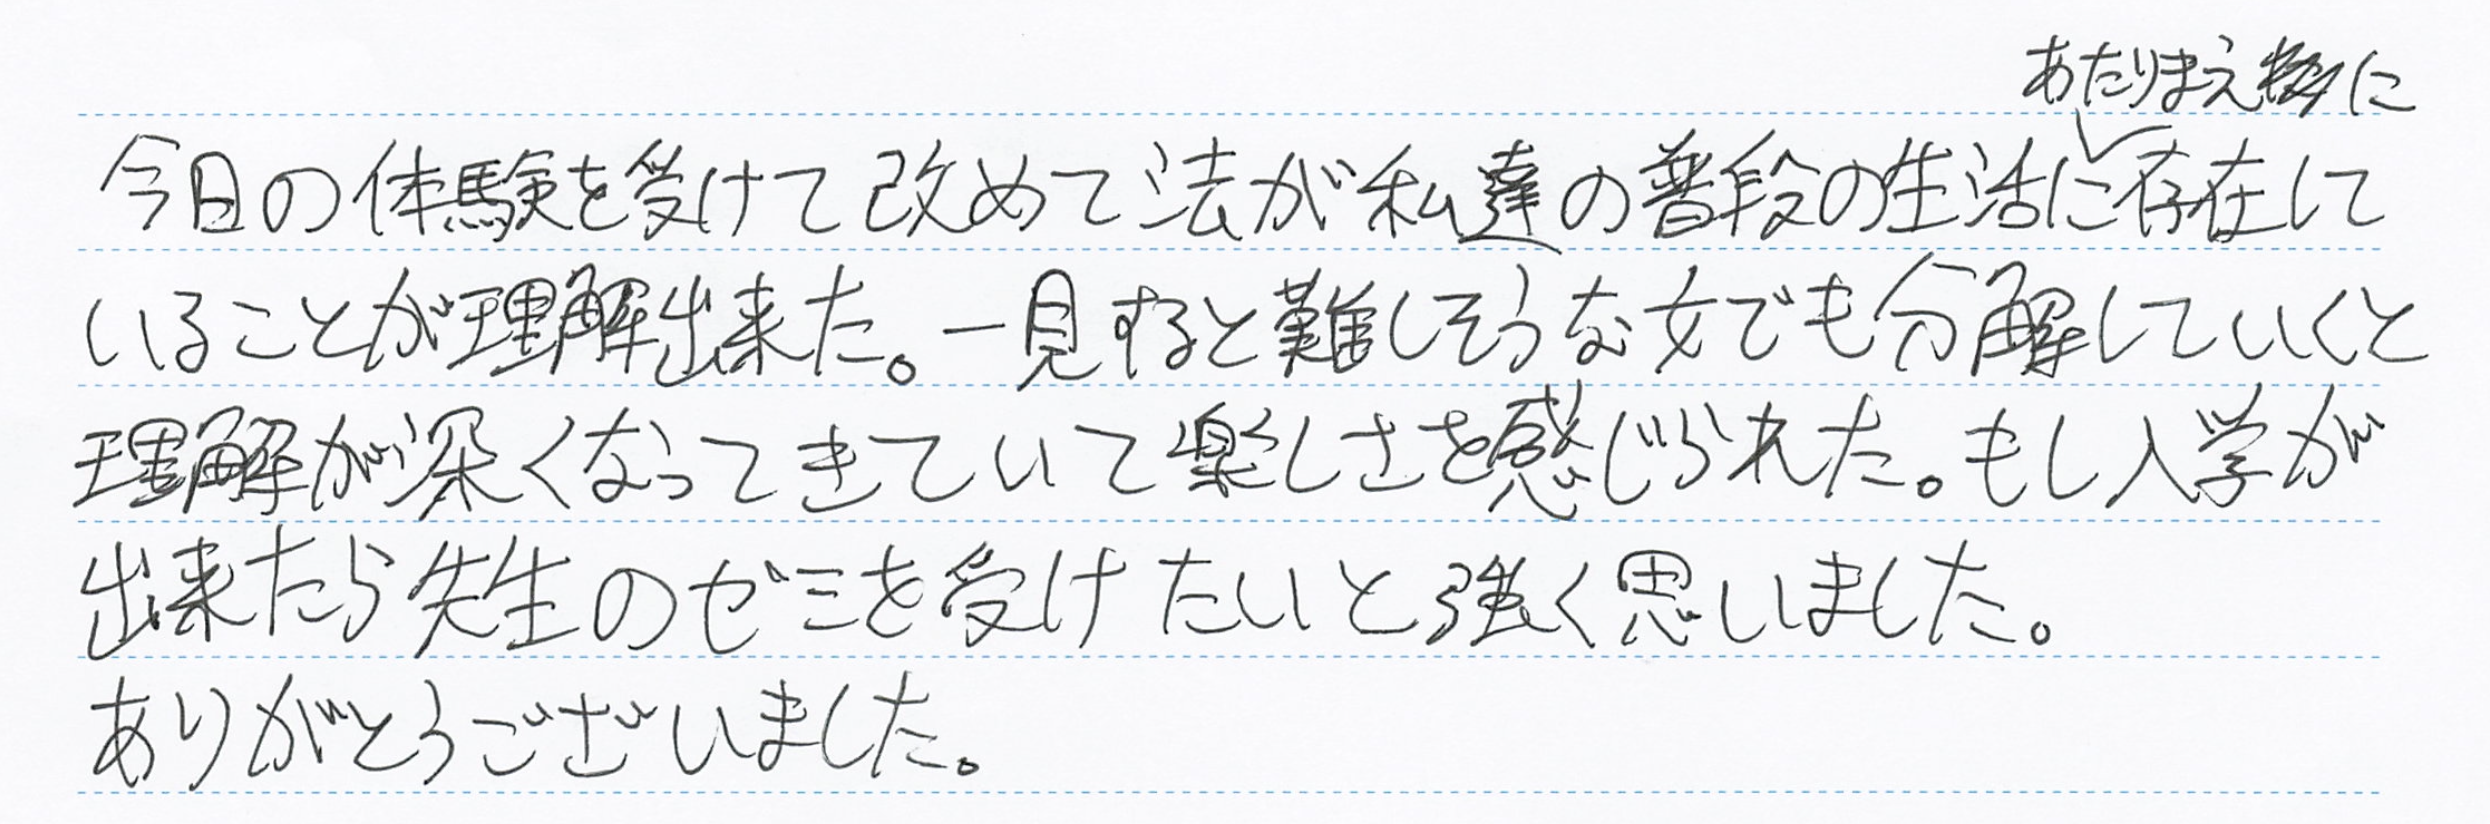 あたりまえに
今日の体験を受けて改めて法が私達の普段の生活に存在して
いることが理解出来た。一見すると難しそうな文でも分解していくと
理解が深くなってきていて楽しさを感じられた。もし入学が
出来たら先生のゼミを受けたいと強く思いました。
ありがとうございました。